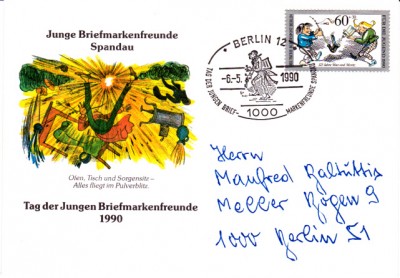 Junge Briefmarkenfreunde
Spandau
Ofen, Tisch und Sorgensitz –
Alles fliegt im Pulverblitz.
Tag der Jungen Briefmarkenfreunde
1990
BERLIN 12
-6.-5. 1990
TAG DER JUNGEN BRIEF- MARKENFREUNDE SPANDAU
1000
60
DEUTSCHE BUNDESPOST BERLIN
125 Jahre Max und Moritz
Herrn
Manfred
Meller Bogen 9
1000 Berlin 51